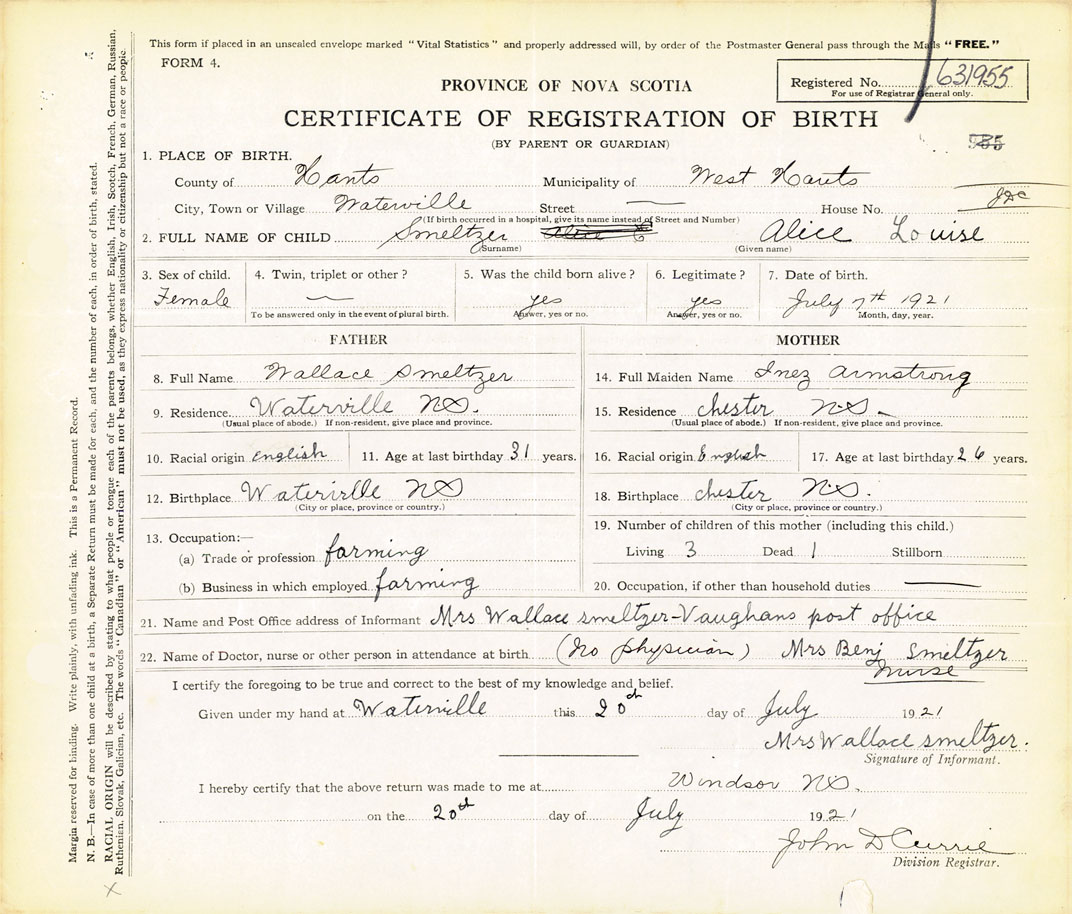 This form if placed in an unsealed envelope marked "Vital Statistics" and properly addressed will, by order of the Postmaster General pass through the Mails "FREE."
FORM 4.
PROVINCE OF NOVA SCOTIA
Registered No. 631955
For use of Registrar General only.
CERTIFICATE OF REGISTRATION OF BIRTH
(BY PARENT OR GUARDIAN)
985
1. PLACE OF BIRTH.
County of Hants Municipality of West Hants
City, Town or Village Waterville Street — House No.
(If birth occurred in a hospital, give its name instead of Street and Number)
2. FULL NAME OF CHILD Smeltzer Alice Alice Louise
(Surname) (Given name)
3. Sex of child. 4. Twin, triplet or other? 5. Was the child born alive? 6. Legitimate? 7. Date of birth.
Female — yes yes July 7th 1921
To be answered only in the event of plural birth. Answer, yes or no. Answer, yes or no. Month, day, year.
FATHER MOTHER
8. Full Name Wallace Smeltzer 14. Full Maiden Name Inez Armstrong
9. Residence Waterville NS. 15. Residence chester NS.
(Usual place of abode.) If non-resident, give place and province. (Usual place of abode.) If non-resident, give place and province.
10. Racial origin english 11. Age at last birthday 31 years. 16. Racial origin English 17. Age at last birthday 26 years.
12. Birthplace Waterville NS 18. Birthplace chester NS.
(City or place, province or country.) (City or place, province or country.)
13. Occupation:— 19. Number of children of this mother (including this child.)
(a) Trade or profession farming Living 3 Dead 1 Stillborn
(b) Business in which employed farming 20. Occupation, if other than household duties —
21. Name and Post Office address of Informant Mrs Wallace smeltzer-Vaughans post office
22. Name of Doctor, nurse or other person in attendance at birth (No physician) Mrs Benj Smeltzer
Nurse
I certify the foregoing to be true and correct to the best of my knowledge and belief.
Given under my hand at Waterville this 20th day of July 1921
Mrs Wallace smeltzer.
Signature of Informant.
I hereby certify that the above return was made to me at Windsor NS.
on the 20th day of July 1921
John D Currie
Division Registrar.
Margin reserved for binding. Write plainly, with unfading ink. This is a Permanent Record.
N. B.—In case of more than one child at a birth, a Separate Return must be made for each, and the number of each, in order of birth, stated.
RACIAL ORIGIN will be described by stating to what people or tongue each of the parents belongs, whether English, Irish, Scotch, French, German, Russian,
Ruthenian, Slovak, Galician, etc. The words "Canadian" or "American" must not be used, as they express nationality or citizenship but not a race or people.